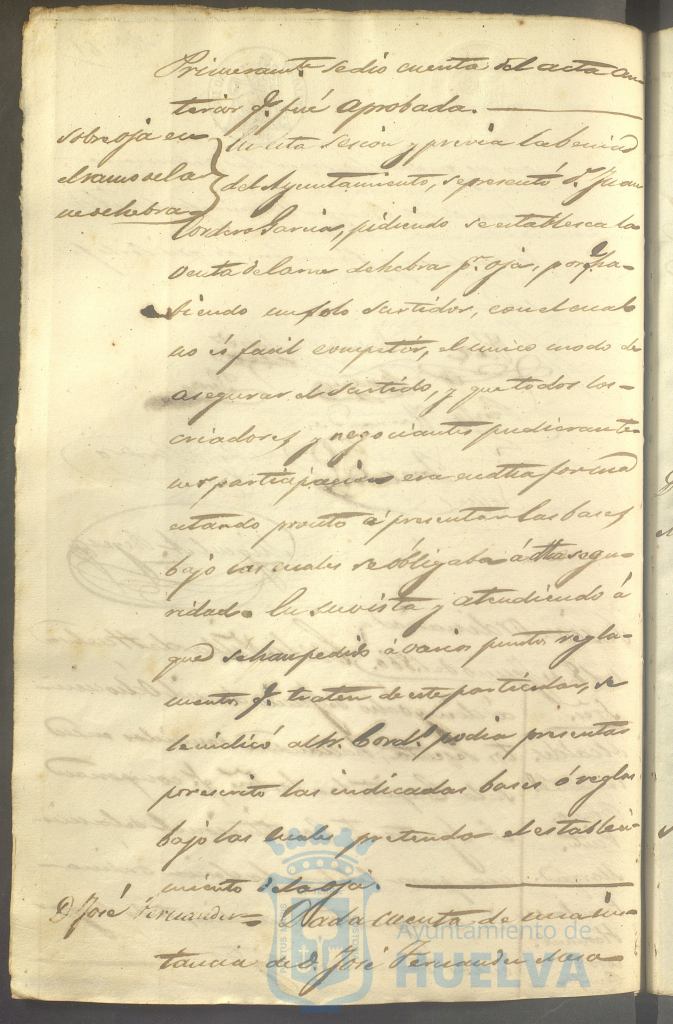 Primeramte. se dio cuenta del acta an-
terior qe. fué aprobada.
sobre oja en
el ramo de la
ne de hebra
En esta sesion y previa la benia
del Ayuntamiento, se presentó Dn. Juan
Cordero Garcia, pidiendo se establesca la
venta de carne de hebra pr. oja, porqe. ha-
biendo un solo surtidor, con el cual
no és facil competir, el unico modo de
asegurar el surtido, y que todos los
criadores y negociantes pudieran te-
ner participacion era en dha forma
estando pronto á presentar las bases
bajo las cuales se óbligaba á dha segu-
ridad. En su vista y atendiendo á
que se han pedido á varios puntos regla-
mentos qe. traten de este particular, se
le indicó al Sr. Cordo. podia presentar
pr escrito las indicadas bases ó reglas
bajo las cuales pretenda el estableci-
miento de la oja.
D. José Fernandez = Dada cuenta de una ins-
tancia de D. José Fernandez
Ayuntamiento de
HUELVA